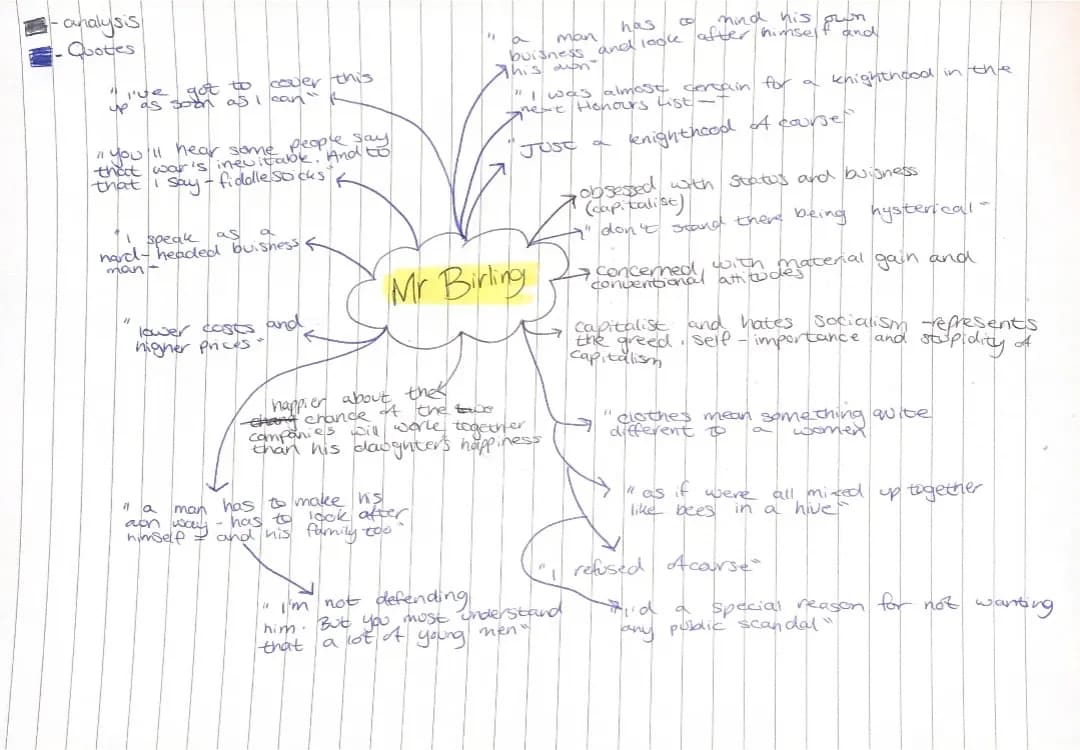 - analysis
- Quotes
" I've got to cover this
up as soon as I can"
" You'll hear some people say
that war's inevitable. And to
that I say - fiddlesticks"
"I speak as a
hard-headed buisness
man"
" lower costs and
higher prices"
happier about the
chance of the two
companies will work together
than his daughter's happiness
" a man has to make his
own way - has to look after
himself - and his family too"
" I'm not defending
him. But you must understand
that a lot of young men"
" a man has to mind his own
buisness and look after himself and
his own-
" I was almost certain for a knighthood in the
next Honours List -"
"Just a knighthood of course"
obsessed with status and buisness
(capitalist)
" don't stand there being hysterical-"
concerned with material gain and
conventional attitudes
capitalist and hates socialism - represents
the greed, self-importance and stupidity of
capitalism
" clothes mean something quite
different to a women"
" as if were all mixed up together
like bees in a hive"
"I refused of course"
I'd a special reason for not wanting
any public scandal"
Mr Birling